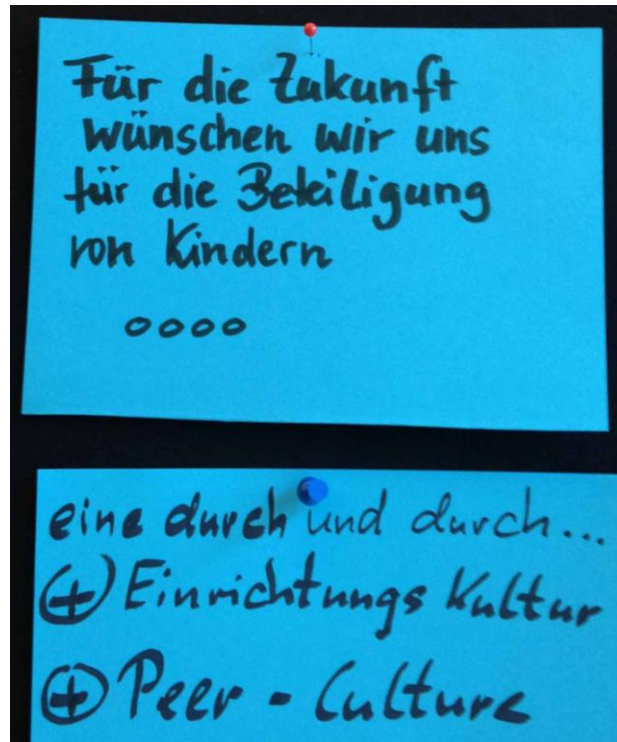 Für die Zukunft
wünschen wir uns
für die Beteiligung
von Kindern
oooo
eine durch und durch...
(+) Einrichtungs Kultur
(+) Peer - Culture